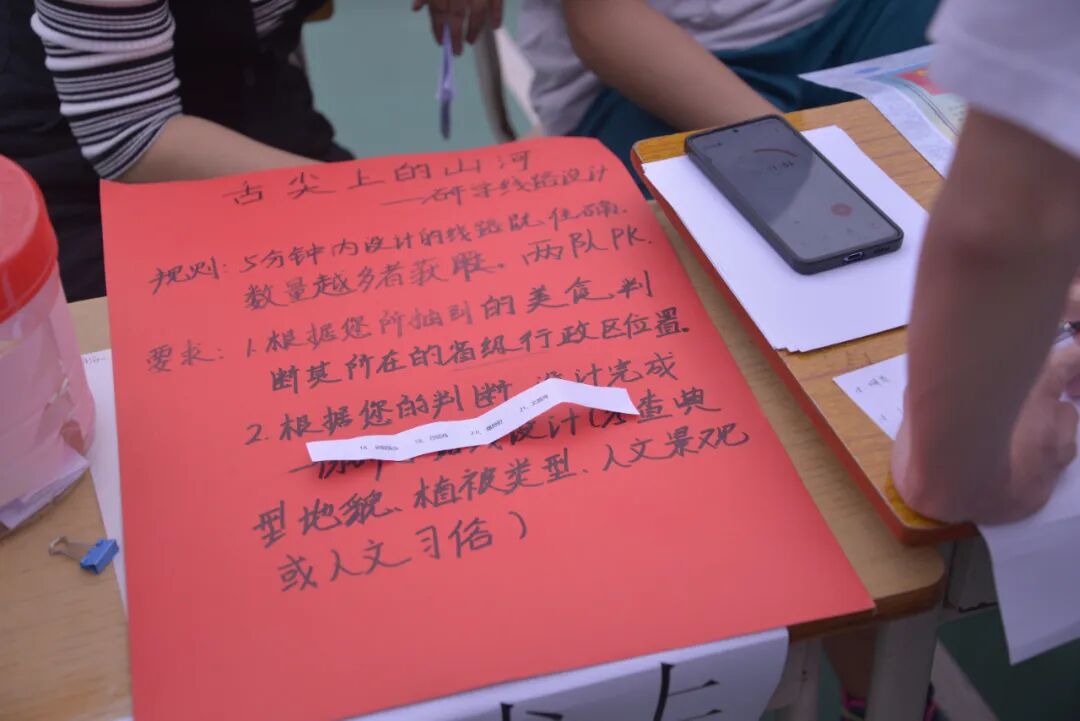 舌尖上的山河
——研学线路设计
规则：5分钟内设计的线路既准确、
数量越多者获胜。两队PK.
要求：1.根据您所抽到的美食,判
断其所在的省级行政区位置。
2.根据您的判断,设计完成
设计(考查典
型地貌、植被类型、人文景观
或人文习俗)